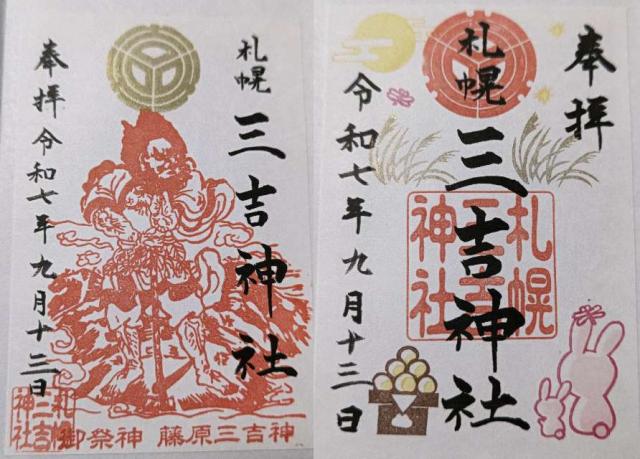 札幌
三吉神社
奉拝 令和七年九月十三日
札幌三吉神社
御祭神 藤原三吉神
奉拝
札幌
三吉神社
札幌三吉神社
令和七年九月十三日